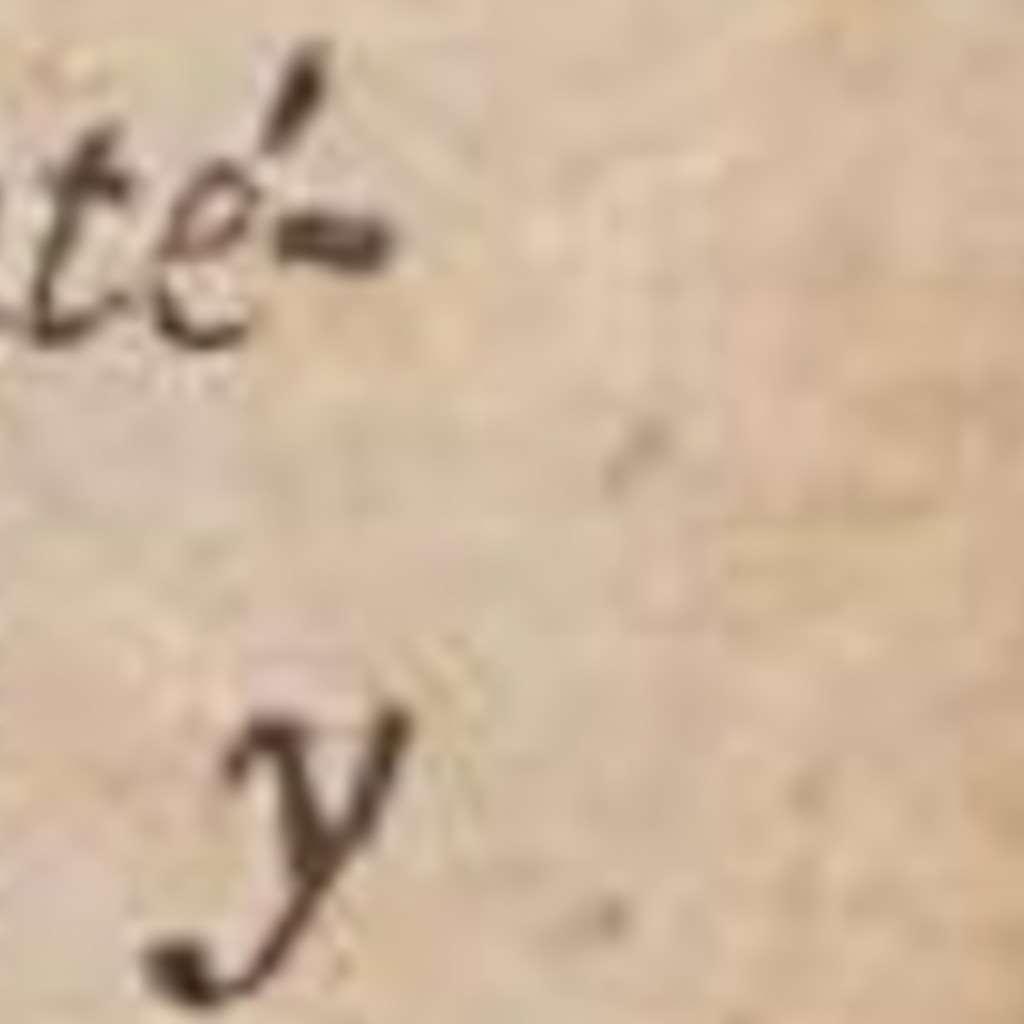 té-
y